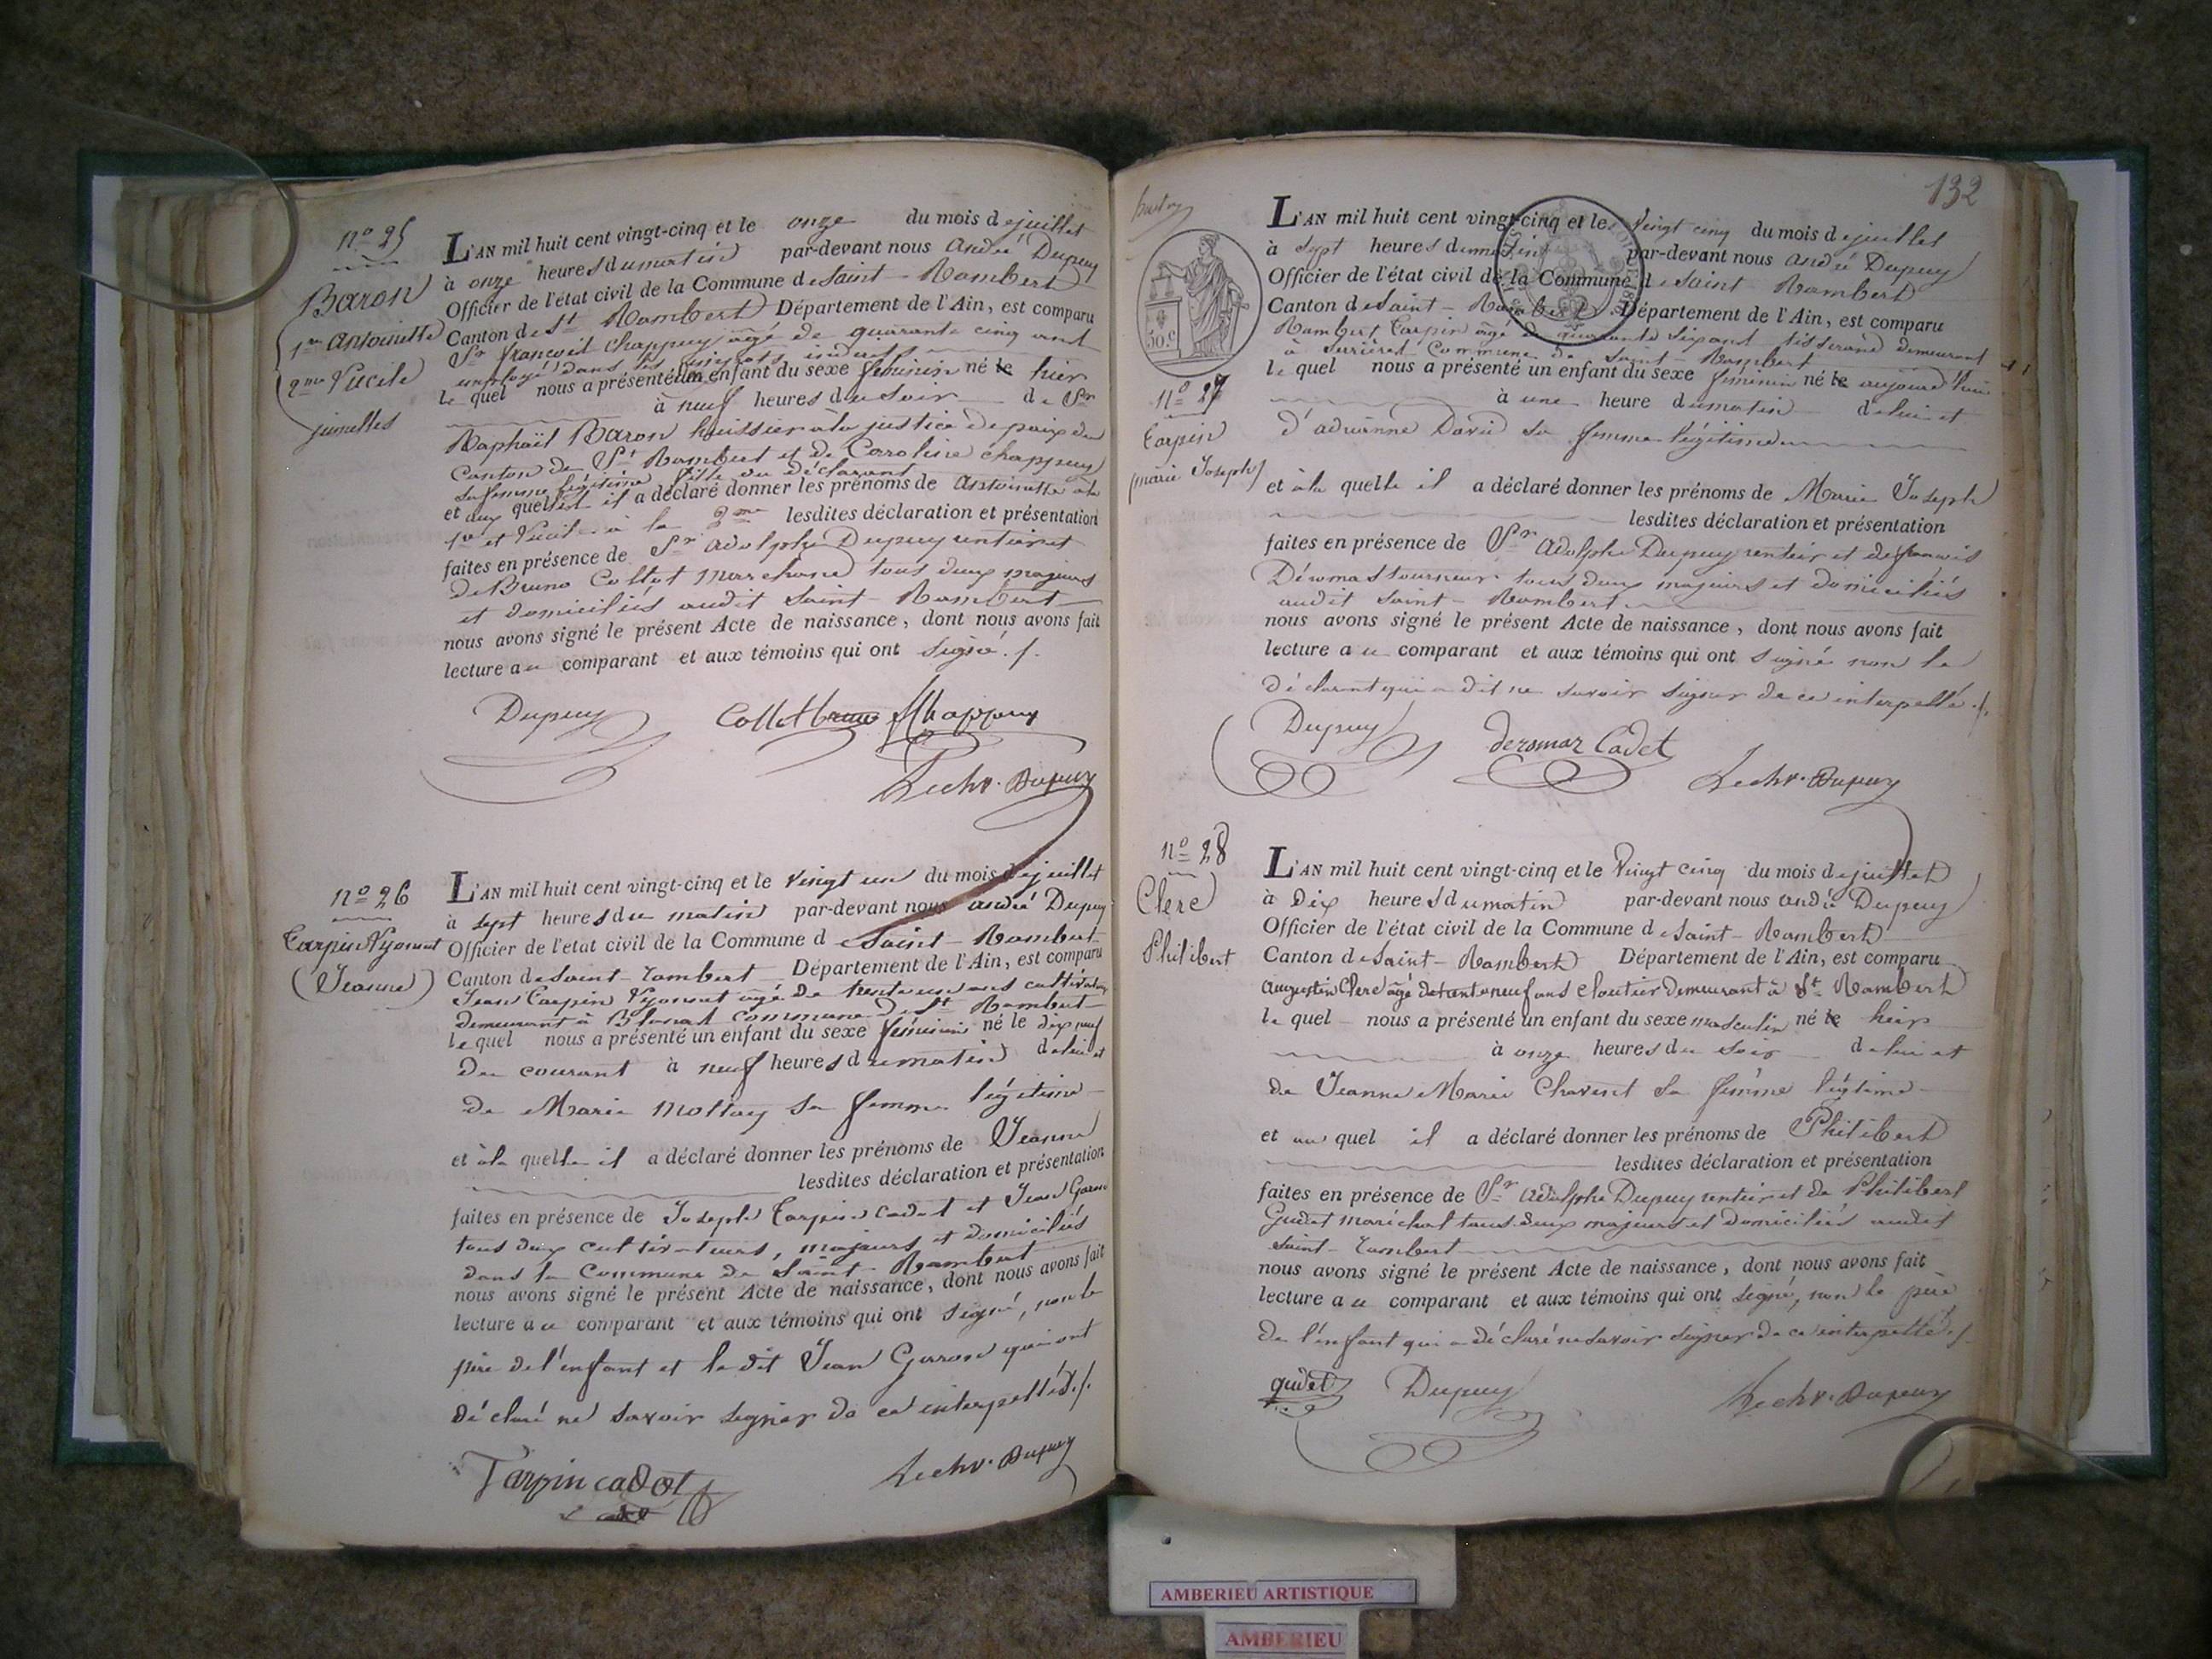 n° 25
Baron
1re Antoinette
2me Lucile
jumelles
L'AN mil huit cent vingt-cinq et le onze du mois de juillet
à onze heures du matin par-devant nous André Dupuy
Officier de l'état civil de la Commune de Saint-Rambert
Canton de St Rambert Département de l'Ain, est comparu
Sr françois Chappuy âgé de quarante cinq ans
employé dans les indirects
le quel nous a présenté un enfant du sexe féminin né le hier
à neuf heures du soir de Sr
Raphaël Baron huissier à la justice de paix du
Canton de St Rambert et de Caroline Chappuy
sa femme légitime fille du déclarant
et aux quelles il a déclaré donner les prénoms de Antoinette à la
1re et Lucile à la 2me lesdites déclaration et présentation
faites en présence de Sr Adolphe Dupuy rentier et
de Bruno Collet marchand tous deux majeurs
et domiciliés audit Saint-Rambert
nous avons signé le présent Acte de naissance, dont nous avons fait
lecture au comparant et aux témoins qui ont signé ./.
Dupuy Collet Chappuy
Dupuy
n° 26
Tarpin Vyonnet
(Jeanne)
L'AN mil huit cent vingt-cinq et le vingt un du mois de juillet
à sept heures du matin par-devant nous André Dupuy
Officier de l'état civil de la Commune de Saint-Rambert
Canton de Saint-Rambert Département de l'Ain, est comparu
Jean Tarpin Vyonnet âgé de trente un ans cultivateur
demeurant à Blanat commune de St Rambert
le quel nous a présenté un enfant du sexe féminin né le dix neuf
du courant à neuf heures du matin de lui et
de Marie Mollay sa femme légitime
et à la quelle il a déclaré donner les prénoms de Jeanne
lesdites déclaration et présentation
faites en présence de Joseph Tarpin cadet et Jean
tous deux cultivateurs, majeurs et domiciliés
dans la Commune de Saint-Rambert
nous avons signé le présent Acte de naissance, dont nous avons fait
lecture au comparant et aux témoins qui ont signé, non le
père de l'enfant et le dit Jean qui ont
déclaré ne savoir signer de ce interpellés ./.
Tarpin cadet Dupuy
132
50.C
n° 27
Tarpin
(marie Joseph)
L'AN mil huit cent vingt-cinq et le vingt cinq du mois de juillet
à sept heures du matin par-devant nous André Dupuy
Officier de l'état civil de la Commune de Saint-Rambert
Canton de Saint-Rambert Département de l'Ain, est comparu
Rambert Tarpin âgé de quarante six ans tisserand demeurant
à Serrières Commune de Saint-Rambert
le quel nous a présenté un enfant du sexe féminin né le aujourd'hui
à une heure du matin de lui et
d'adrianne David sa femme légitime
et à la quelle il a déclaré donner les prénoms de Marie Joseph
lesdites déclaration et présentation
faites en présence de Sr Adolphe Dupuy rentier et de françois
Déromas tourneur tous deux majeurs et domiciliés
audit Saint-Rambert
nous avons signé le présent Acte de naissance, dont nous avons fait
lecture au comparant et aux témoins qui ont signé non le
déclarant qui a dit ne savoir signer de ce interpellé ./.
Dupuy deromaz Cadet Dupuy
n° 28
Clerc
Philibert
L'AN mil huit cent vingt-cinq et le vingt cinq du mois de juillet
à dix heures du matin par-devant nous André Dupuy
Officier de l'état civil de la Commune de Saint-Rambert
Canton de Saint-Rambert Département de l'Ain, est comparu
Augustin Clerc âgé de trente neuf ans cloutier demeurant à St Rambert
le quel nous a présenté un enfant du sexe masculin né le hier
à onze heures du soir de lui et
de Jeanne Marie Chavent sa femme légitime
et au quel il a déclaré donner les prénoms de Philibert
lesdites déclaration et présentation
faites en présence de Sr Adolphe Dupuy rentier et de Philibert
Gudet maréchal tous deux majeurs et domiciliés audit
Saint-Rambert
nous avons signé le présent Acte de naissance, dont nous avons fait
lecture au comparant et aux témoins qui ont signé, non le père
de l'enfant qui a déclaré ne savoir signer de ce interpellé ./.
gudet Dupuy Dupuy
AMBERIEU ARTISTIQUE
AMBERIEU